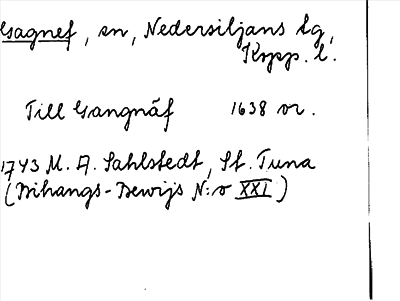 Gagnef, sn, Nedersiljans tg,
Kopp. l.
Till Gangnäf 1638 or.
1743 M. A. Sahlstedt, St. Tuna
(Bihangs-Bewijs N:o XXI)